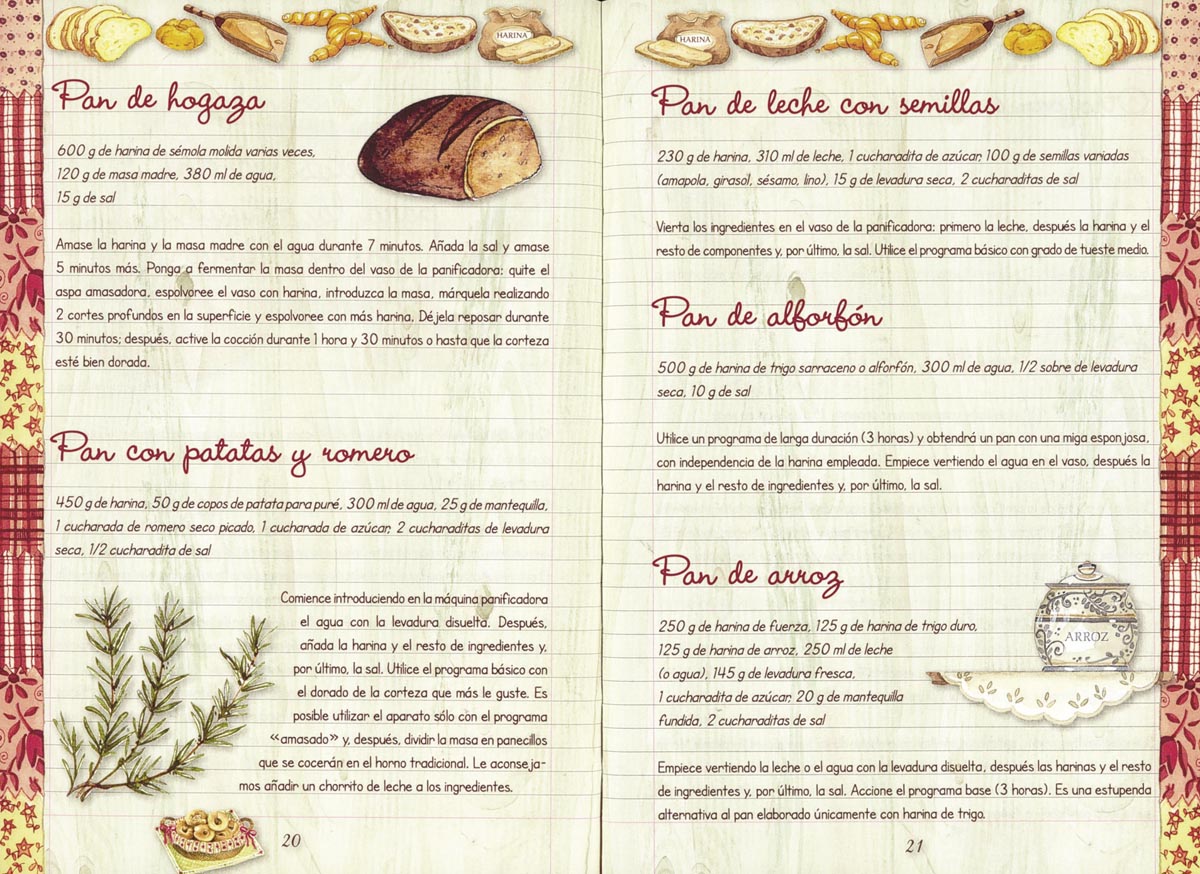 HARINA
Pan de hogaza
600 g de harina de sémola molida varias veces,
120 g de masa madre, 380 ml de agua,
15 g de sal
Amase la harina y la masa madre con el agua durante 7 minutos. Añada la sal y amase
5 minutos más. Ponga a fermentar la masa dentro del vaso de la panificadora: quite el
aspa amasadora, espolvoree el vaso con harina, introduzca la masa, márquela realizando
2 cortes profundos en la superficie y espolvoree con más harina. Déjela reposar durante
30 minutos; después, active la cocción durante 1 hora y 30 minutos o hasta que la corteza
esté bien dorada.
Pan con patatas y romero
450 g de harina, 50 g de copos de patata para puré, 300 ml de agua, 25 g de mantequilla,
1 cucharada de romero seco picado, 1 cucharada de azúcar, 2 cucharaditas de levadura
seca, 1/2 cucharadita de sal
Comience introduciendo en la máquina panificadora
el agua con la levadura disuelta. Después,
añada la harina y el resto de ingredientes y,
por último, la sal. Utilice el programa básico con
el dorado de la corteza que más le guste. Es
posible utilizar el aparato sólo con el programa
«amasado» y, después, dividir la masa en panecillos
que se cocerán en el horno tradicional. Le aconseja-
mos añadir un chorrito de leche a los ingredientes.
20
HARINA
Pan de leche con semillas
230 g de harina, 310 ml de leche, 1 cucharadita de azúcar, 100 g de semillas variadas
(amapola, girasol, sésamo, lino), 15 g de levadura seca, 2 cucharaditas de sal
Vierta los ingredientes en el vaso de la panificadora: primero la leche, después la harina y el
resto de componentes y, por último, la sal. Utilice el programa básico con grado de tueste medio.
Pan de alforfón
500 g de harina de trigo sarraceno o alforfón, 300 ml de agua, 1/2 sobre de levadura
seca, 10 g de sal
Utilice un programa de larga duración (3 horas) y obtendrá un pan con una miga esponjosa,
con independencia de la harina empleada. Empiece vertiendo el agua en el vaso, después la
harina y el resto de ingredientes y, por último, la sal.
Pan de arroz
250 g de harina de fuerza, 125 g de harina de trigo duro,
125 g de harina de arroz, 250 ml de leche
(o agua), 145 g de levadura fresca,
1 cucharadita de azúcar, 20 g de mantequilla
fundida, 2 cucharaditas de sal
ARROZ
Empiece vertiendo la leche o el agua con la levadura disuelta, después las harinas y el resto
de ingredientes y, por último, la sal. Accione el programa base (3 horas). Es una estupenda
alternativa al pan elaborado únicamente con harina de trigo.
21